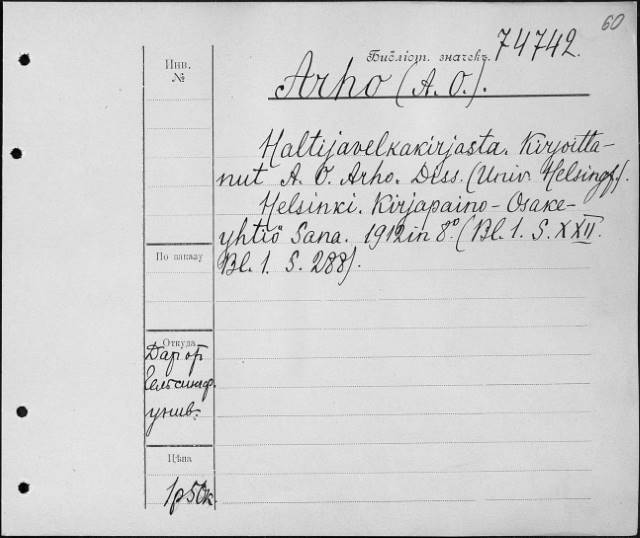 60
Инв.
№
Библіот. значекъ.
74742.
Arho (A. O.).
Haltijavelkakirjasta. Kirjoitta-
nut A. O. Arho. Diss. (Univ. Helsingf.).
Helsinki. Kirjapaino-Osake-
yhtiö Sana. 1912 in 8°. (Bl. 1. S. XXII.
Bl. 1. S. 288).
По заказу
Откуда
Дар от
Гельсингф.
унив.
Цѣна
1р50к